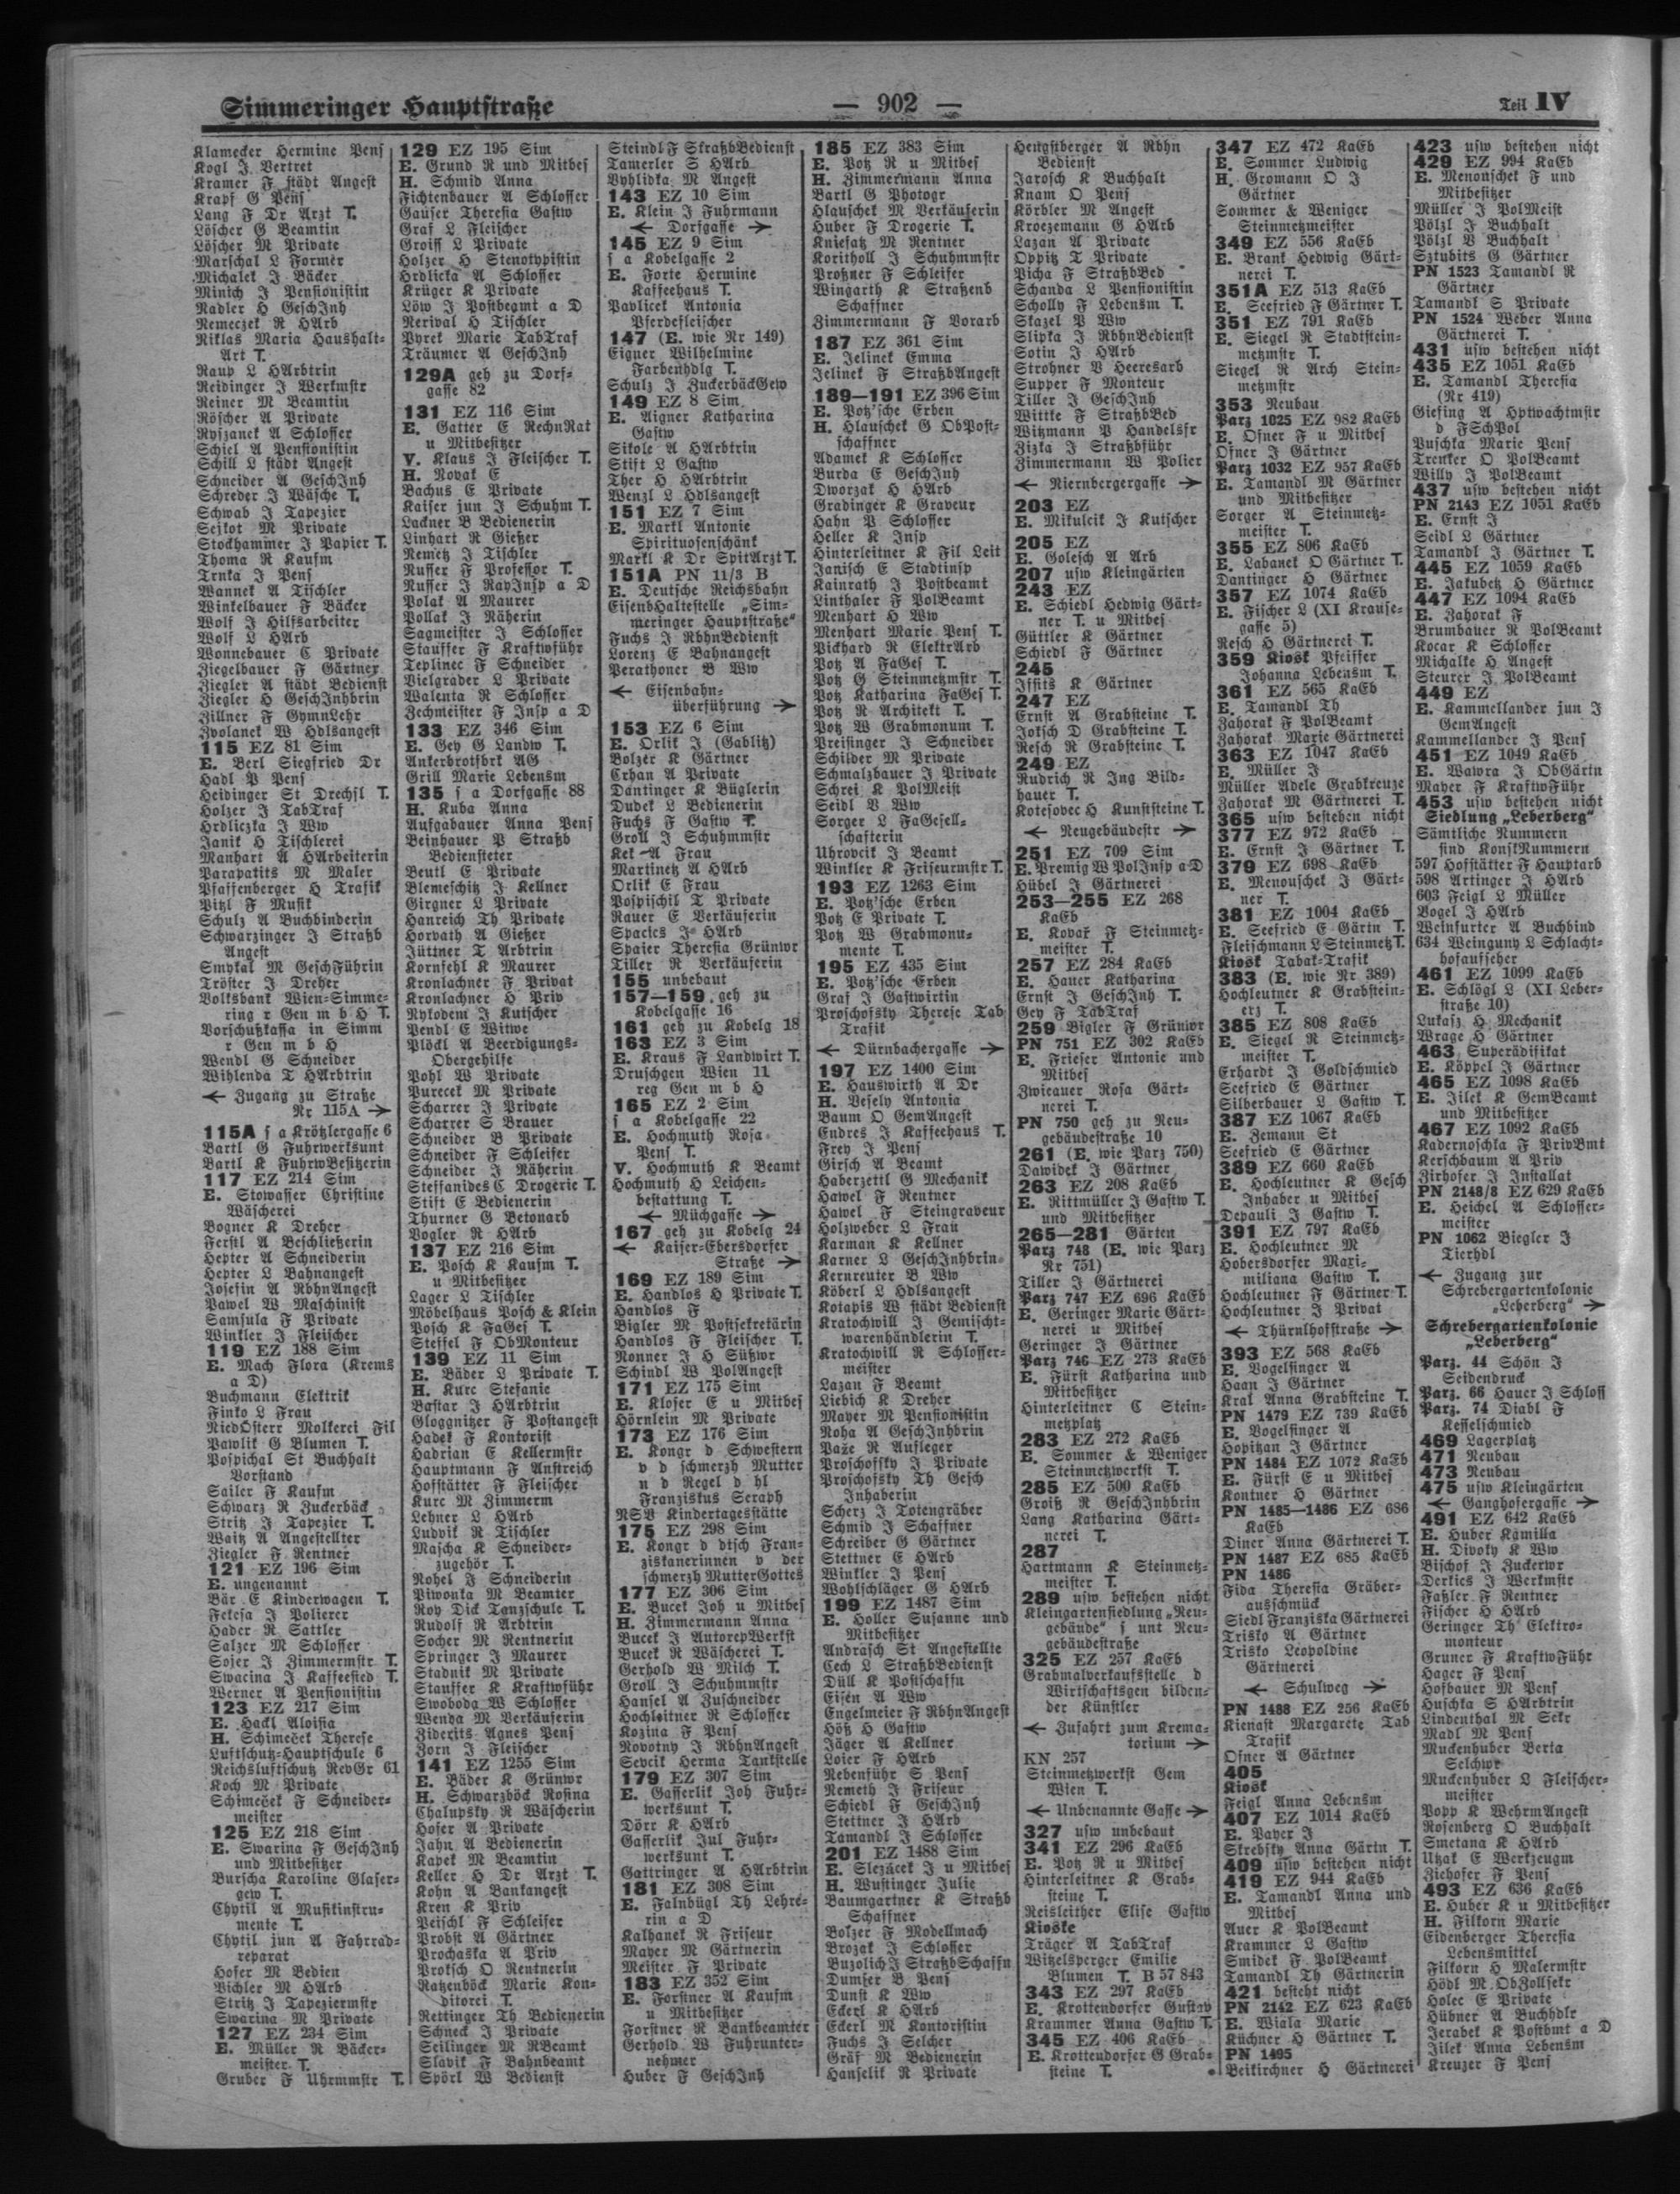 Simmeringer Hauptstraße
— 902 —
Teil IV
Klamecker Hermine Pens
Kogl J Vertret
Kramer F städt Angest
Krapf G Pens
Lang F Dr Arzt T.
Löscher G Beamtin
Löscher M Private
Marschal L Former
Michalek J Bäcker
Minich J Pensionistin
Nadler H GeschJnh
Nemeczek R HArb
Niklas Maria Haushalt-
Art T.
Raup L HArbtrin
Reidinger J Werkmstr
Reiner M Beamtin
Röscher A Private
Ryszanek A Schlosser
Schiel A Pensionistin
Schill L städt Angest
Schneider A GeschJnh
Schreder J Wäsche T.
Schwab J Tapezier
Seikot M Private
Stockhammer J Papier T.
Thoma R Kaufm
Trnka J Pens
Wannek A Tischler
Winkelbauer F Bäcker
Wolf J Hilfsarbeiter
Wolf L HArb
Wonnebauer C Private
Ziegelbauer F Gärtner
Ziegler A städt Bedienst
Ziegler H GeschJnhbrin
Zillner F GymnLehr
Zvolanek W Hdlsangest
115 EZ 81 Sim
E. Berl Siegfried Dr
Hadl P Pens
Heidinger St Drechsl T.
Holzer J TabTraf
Hrdliczka J Ww
Janik H Tischlerei
Manhart A HArbeiterin
Parapatits M Maler
Pfaffenberger H Trafik
Pitzl F Musik
Schulz A Buchbinderin
Schwarzinger J Straßb
Angest
Smykal M GeschFührin
Tröster J Dreher
Volksbank Wien-Simme-
ring r Gen m b H T.
Vorschußkassa in Simm
r Gen m b H
Wendl G Schneider
Wihlenda T HArbtrin
← Zugang zu Straße
Nr 115A →
115A s a Krötzlergasse 6
Bartl G Fuhrwerksunt
Bartl K FuhrwBesitzerin
117 EZ 214 Sim
E. Stowasser Christine
Wäscherei
Bogner K Dreher
Ferstl A Beschließerin
Hepter A Schneiderin
Hepter L Bahnangest
Josefin A RbhnAngest
Pawel W Maschinist
Samsula F Private
Winkler J Fleischer
119 EZ 188 Sim
E. Mach Flora (Krems
a D)
Buchmann Elektrik
Finko L Frau
NiedÖsterr Molkerei Fil
Pawlik G Blumen T.
Pospichal St Buchhalt
Vorstand
Sailer F Kaufm
Schwarz R Zuckerbäck
Stritz J Tapezier T.
Waitz A Angestellter
Ziegler F Rentner
121 EZ 196 Sim
E. ungenannt
Bär E Kinderwagen T.
Fekesa J Polierer
Hader R Sattler
Salzer M Schlosser
Sojer J Zimmermstr T.
Swacina J Kaffeesied T.
Werner A Pensionistin
123 EZ 217 Sim
E. Hackl Aloisia
H. Schimeček Therese
Luftschutz-Hauptschule 6
Reichsluftschutz RevGr 61
Koch M Private
Schimeček F Schneider-
meister
125 EZ 218 Sim
E. Swarina F GeschJnh
und Mitbesitzer
Burscha Karoline Glaser-
gew T.
Chytil A Musikinstru-
mente T.
Chytil jun A Fahrrad-
reparat
Hofer M Bedien
Pichler M HArb
Stritz J Tapeziermstr
Swarina M Private
127 EZ 234 Sim
E. Müller R Bäcker-
meister T.
Gruber F Uhrmmstr T.
129 EZ 195 Sim
E. Grund R und Mitbes
H. Schmid Anna
Fichtenbauer A Schlosser
Gauser Theresia Gastw
Graf L Fleischer
Groiss L Private
Holzer H Stenotypistin
Hrdlicka A Schlosser
Krüger K Private
Löw J Postbeamt a D
Nerival H Tischler
Pyrek Marie TabTraf
Träumer A GeschJnh
129A geh zu Dorf-
gasse 82
131 EZ 116 Sim
E. Gatter E RechnRat
u Mitbesitzer
V. Klaus J Fleischer T.
H. Novak E
Bachus E Private
Kaiser jun J Schuhm T.
Lackner B Bedienerin
Linhart R Gießer
Nemetz J Tischler
Nusser F Professor T.
Nusser J RayInsp a D
Polak A Maurer
Pollak J Näherin
Sagmeister J Schlosser
Stauffer F Kraftwführ
Teplinec F Schneider
Vielgrader L Private
Walenta R Schlosser
Zechmeister F Insp a D
133 EZ 346 Sim
E. Gey G Landw T.
Ankerbrotfbrk AG
Grill Marie Lebensm
135 s a Dorfgasse 88
H. Kuba Anna
Aufgabauer Anna Pens
Beinhauer P Straßb
Bediensteter
Beutl E Private
Blemeschitz J Kellner
Girgner L Private
Hanreich Th Private
Horvath A Gießer
Jüttner T Arbtrin
Kornfehl K Maurer
Kronlachner F Privat
Kronlachner H Priv
Nykodem J Kutscher
Pendl E Witwe
Plöckl A Beerdigungs-
Obergehilfe
Pohl W Private
Purecek M Private
Scharrer J Private
Scharrer S Brauer
Schneider B Private
Schneider F Schleifer
Schneider J Näherin
Steffanides C Drogerie T.
Stift E Bedienerin
Thurner G Betonarb
Vogler R HArb
137 EZ 216 Sim
E. Posch K Kaufm T.
u Mitbesitzer
Lager L Tischler
Möbelhaus Posch & Klein
Posch K FaGes T.
Steffel F ObMonteur
139 EZ 11 Sim
E. Bäder L Private T.
H. Kurc Stefanie
Bastar J HArbtrin
Gloggnitzer F Postangest
Hadek F Kontorist
Hadrian E Kellermstr
Hauptmann F Anstreich
Hofstätter F Fleischer
Kurc M Zimmerm
Lehner L HArb
Ludvik R Tischler
Mascha K Schneider-
zugehör T.
Rohel J Schneiderin
Piwonka M Beamter
Roy Dick Tanzschule T.
Rudolf R Arbtrin
Socher M Rentnerin
Springer J Maurer
Stadnik M Private
Stauffer K Kraftwführ
Swoboda W Schlosser
Wenda M Verkäuferin
Ziderits Agnes Pens
Zorn J Fleischer
141 EZ 1255 Sim
E. Bäder K Grünwr
H. Schwarzböck Rosina
Chalupsky R Wäscherin
Hofer A Private
Jahn A Bedienerin
Kapek M Beamtin
Keller H Dr Arzt T.
Kohn A Bankangest
Kren K Priv
Peischl F Schleifer
Probst A Gärtner
Prochaska A Priv
Proksch O Rentnerin
Ratzenböck Marie Kon-
ditorei T.
Rettinger Th Bedienerin
Schneck J Private
Seilinger M RBeamt
Slavik F Bahnbeamt
Spörl W Bedienst
Steindl F StraßbBedienst
Tamerler S HArb
Vyhlidka M Angest
143 EZ 10 Sim
E. Klein J Fuhrmann
← Dorfgasse →
145 EZ 9 Sim
s a Kobelgasse 2
E. Forte Hermine
Kaffeehaus T.
Pavlicek Antonia
Pferdefleischer
147 (E. wie Nr 149)
Eigner Wilhelmine
Farbenhdlg T.
Schulz J ZuckerbäckGew
149 EZ 8 Sim
E. Aigner Katharina
Gastw
Sikole A HArbtrin
Stift L Gastw
Ther H HArbtrin
Wenzl L Hdlsangest
151 EZ 7 Sim
E. Markl Antonie
Spirituosenschänk
Markl K Dr SpitArzt T.
151A PN 11/3 B
E. Deutsche Reichsbahn
EisenbHaltestelle „Sim-
meringer Hauptstraße“
Fuchs J RbhnBedienst
Lorenz E Bahnangest
Perathoner B Ww
← Eisenbahn-
überführung →
153 EZ 6 Sim
E. Orlik J (Gablitz)
Bolzer K Gärtner
Crhan A Private
Dantinger K Büglerin
Dudek L Bedienerin
Fuchs F Gastw T.
Groll J Schuhmmstr
Kek A Frau
Martinetz A HArb
Orlik E Frau
Pospischil T Private
Rauer E Verkäuferin
Spacics J HArb
Spaier Theresia Grünwr
Tiller R Verkäuferin
155 unbebaut
157—159 geh zu
Kobelgasse 16
161 geh zu Kobelg 18
163 EZ 3 Sim
E. Kraus F Landwirt T.
Druschgen Wien 11
reg Gen m b H
165 EZ 2 Sim
s a Kobelgasse 22
E. Hochmuth Rosa
Pens T.
V. Hochmuth K Beamt
Hochmuth H Leichen-
bestattung T.
← Mückgasse →
167 geh zu Kobelg 24
← Kaiser-Ebersdorfer
Straße →
169 EZ 189 Sim
E. Handlos H Private T.
Handlos F
Bigler M Postsekretärin
Handlos F Fleischer T.
Nonner J H Süßwr
Schindl W PolAngest
171 EZ 175 Sim
E. Kloser E u Mitbes
Hörnlein M Private
173 EZ 176 Sim
E. Kongr d Schwestern
v d schmerzh Mutter
n d Regel d hl
Franziskus Seraph
NSV Kindertagesstätte
175 EZ 298 Sim
E. Kongr d dtsch Fran-
ziskanerinnen v der
schmerzh MutterGottes
177 EZ 306 Sim
E. Bucek Joh u Mitbes
H. Zimmermann Anna
Bucek J AutorepWerkst
Bucek R Wäscherei T.
Gerhold W Milch T.
Groll J Schuhmmstr
Hansel A Zuschneider
Hochleitner R Schlosser
Kozina F Pens
Novotny J RbhnAngest
Sevcik Herma Tankstelle
179 EZ 307 Sim
E. Gasserlik Joh Fuhr-
werksunt T.
Dörr K HArb
Gasserlik Jul Fuhr-
werksunt T.
Gattringer A HArbtrin
181 EZ 308 Sim
E. Falnbügl Th Lehre-
rin a D
Kalhanek R Friseur
Mayer M Gärtnerin
Meister F Private
183 EZ 352 Sim
E. Forstner A Kaufm
u Mitbesitzer
Forstner R Bankbeamter
Gerhold W Fuhrunter-
nehmer
Huber F GeschJnh
185 EZ 383 Sim
E. Potz R u Mitbes
H. Zimmermann Anna
Bartl G Photogr
Hlauschek M Verkäuferin
Huber F Drogerie T.
Kniesatz M Rentner
Koritholl J Schuhmmstr
Proßner F Schleifer
Wingarth K Straßenb
Schaffner
Zimmermann F Vorarb
187 EZ 361 Sim
E. Jelinek Emma
Jelinek F StraßbAngest
189—191 EZ 396 Sim
E. Potz'sche Erben
H. Hlauschek G ObPost-
schaffner
Adamek K Schlosser
Burda E GeschJnh
Dworzak H HArb
Gradinger K Graveur
Hahn P Schlosser
Heller K Insp
Hinterleitner K Fil Leit
Janisch E Stadtinsp
Kainrath J Postbeamt
Linthaler F PolBeamt
Menhart H Ww
Menhart Marie Pens T.
Pickhard R ElektrArb
Potz A FaGes T.
Potz G Steinmetzmstr T.
Potz Katharina FaGes T.
Potz R Architekt T.
Potz W Grabmonum T.
Preisinger J Schneider
Schilder M Private
Schmalzbauer J Private
Schrei K PolMeist
Seidl V Ww
Sorger L FaGesell-
schafterin
Uhrovcik J Beamt
Winkler K Friseurmstr T.
193 EZ 1263 Sim
E. Potz'sche Erben
Potz E Private T.
Potz W Grabmonu-
mente T.
195 EZ 435 Sim
E. Potz'sche Erben
Graf J Gastwirtin
Proschofsky Therese Tab
Trafik
← Dürnbachergasse →
197 EZ 1400 Sim
E. Hauswirth A Dr
H. Vesely Antonia
Baum O GemAngest
Endres J Kaffeehaus T.
Frey J Pens
Girsch A Beamt
Haberzettl G Mechanik
Hawel F Rentner
Hawel F Steingraveur
Holzweber L Frau
Karman K Kellner
Karner L GeschJnhbrin
Kernreuter B Ww
Köberl L Hdlsangest
Kotapis W städt Bedienst
Kratochwill J Gemischt-
warenhändlerin T.
Kratochwill R Schlosser-
meister
Lazan F Beamt
Liebich K Dreher
Mayer M Pensionistin
Noha A GeschJnhbrin
Paže R Aufleger
Proschofsky J Private
Proschofsky Th Gesch
Inhaberin
Scherz J Totengräber
Schmid J Schaffner
Schreiber G Gärtner
Stettner E HArb
Winkler J Pens
Wohlschläger G HArb
199 EZ 1487 Sim
E. Holler Susanne und
Mitbesitzer
Andrasch St Angestellte
Cech L StraßbBedienst
Düll K Postschaffn
Eisen A Ww
Engelmeier F RbhnAngest
Höß H Gastw
Jäger A Kellner
Loier F HArb
Nebenführ S Pens
Nemeth J Friseur
Schiedl F GeschJnh
Stettner J HArb
Tamandl J Schlosser
201 EZ 1488 Sim
E. Slezácek J u Mitbes
H. Wustinger Julie
Baumgartner K Straßb
Schaffner
Bolzer F Modellmach
Brozak J Schlosser
Buzolich J StraßbSchaffn
Dumser B Pens
Dunst K Ww
Eckerl K HArb
Eckerl M Kontoristin
Fuchs J Selcher
Gräf M Bedienerin
Hanselik R Private
Hengstberger A Rbhn
Bedienst
Jarosch K Buchhalt
Knam O Pens
Körbler M Angest
Kroezemann G HArb
Lazan A Private
Oppitz T Private
Picha F StraßbBed
Schanda L Pensionistin
Scholly F Lebensm T.
Skazel P Ww
Slipka J RbhnBedienst
Sotin J HArb
Strohner V Heeresarb
Supper F Monteur
Tiller J GeschJnh
Wittke F StraßbBed
Witzmann P Handelsfr
Zizka J Straßbführ
Zimmermann W Polier
← Niernbergergasse →
203 EZ
E. Mikulcik J Kutscher
205 EZ
E. Golesch A Arb
207 usw Kleingärten
243 EZ
E. Schiedl Hedwig Gärt-
ner T. u Mitbes
Güttler K Gärtner
Schiedl F Gärtner
245
Issits K Gärtner
247 EZ
Ernst A Grabsteine T.
Joksch D Grabsteine T.
Resch R Grabsteine T.
249 EZ
Rudrich R Ing Bild-
hauer T.
Kotesovec H Kunststeine T.
← Neugebäudestr →
251 EZ 709 Sim
E. Premig W PolInsp a D
Hübel J Gärtnerei
253—255 EZ 268
KaEb
E. Kovař F Steinmetz-
meister T.
257 EZ 284 KaEb
E. Hauer Katharina
Ernst J GeschJnh T.
Gey F TabTraf
259 Bigler F Grünwr
PN 751 EZ 302 KaEb
E. Frieser Antonie und
Mitbes
Zwieauer Rosa Gärt-
nerei T.
PN 750 geh zu Neu-
gebäudestraße 10
261 (E. wie Parz 750)
Dawidek J Gärtner
263 EZ 208 KaEb
E. Rittmüller J Gastw T.
und Mitbesitzer
265—281 Gärten
Parz 748 (E. wie Parz
Nr 751)
Tiller J Gärtnerei
Parz 747 EZ 696 KaEb
E. Geringer Marie Gärt-
nerei u Mitbes
Geringer J Gärtner
Parz 746 EZ 273 KaEb
E. Fürst Katharina und
Mitbesitzer
Hinterleitner C Stein-
metzplatz
283 EZ 272 KaEb
E. Sommer & Weniger
Steinmetzwerkst T.
285 EZ 500 KaEb
Groiß R GeschJnhbrin
Lang Katharina Gärt-
nerei T.
287
Hartmann K Steinmetz-
meister T.
289 usw bestehen nicht
Kleingartensiedlung „Neu-
gebäude“ s unt Neu-
gebäudestraße
325 EZ 257 KaEb
Grabmalverkaufsstelle d
Wirtschaftsgen bilden-
der Künstler
← Zufahrt zum Krema-
torium →
KN 257
Steinmetzwerkst Gem
Wien T.
← Unbenannte Gasse →
327 usw unbebaut
341 EZ 296 KaEb
E. Potz R u Mitbes
Hinterleitner K Grab-
steine T.
Reisleither Elise Gastw
Kioske
Träger A TabTraf
Witzelsperger Emilie
Blumen T. B 57 843
343 EZ 297 KaEb
E. Krottendorfer Gustav
Krammer Anna Gastw T.
345 EZ 406 KaEb
E. Krottendorfer G Grab-
steine T.
347 EZ 472 KaEb
E. Sommer Ludwig
H. Gromann O J
Gärtner
Sommer & Weniger
Steinmetzmeister
349 EZ 556 KaEb
E. Brank Hedwig Gärt-
nerei T.
351A EZ 513 KaEb
E. Seefried F Gärtner T.
351 EZ 791 KaEb
E. Siegel R Stadtstein-
metzmstr T.
Siegel R Arch Stein-
metzmstr
353 Neubau
Parz 1025 EZ 982 KaEb
E. Ofner F u Mitbes
Ofner J Gärtner
Parz 1032 EZ 957 KaEb
E. Tamandl M Gärtner
und Mitbesitzer
Sorger A Steinmetz-
meister T.
355 EZ 806 KaEb
E. Labanek O Gärtner T.
Dantinger H Gärtner
357 EZ 1074 KaEb
E. Fischer L (XI Krause-
gasse 5)
Resch H Gärtnerei T.
359 Kiosk Pfeiffer
Johanna Lebensm T.
361 EZ 565 KaEb
E. Tamandl Th
Zahorak F PolBeamt
Zahorak Marie Gärtnerei
363 EZ 1047 KaEb
E. Müller J
Müller Adele Grabkreuze
Zahorak M Gärtnerei T.
365 usw bestehen nicht
377 EZ 972 KaEb
E. Ernst J Gärtner T.
379 EZ 698 KaEb
E. Menouschek J Gärt-
ner T.
381 EZ 1004 KaEb
E. Seefried E Gärtn T.
Fleischmann L Steinmetz T.
Kiosk Tabak-Trafik
383 (E. wie Nr 389)
Hochleutner K Grabstein-
erz T.
385 EZ 808 KaEb
E. Siegel R Steinmetz-
meister T.
Erhardt J Goldschmied
Seefried E Gärtner
Silberbauer L Gastw T.
387 EZ 1067 KaEb
E. Zemann St
Seefried E Gärtner
389 EZ 660 KaEb
E. Hochleutner K Gesch
Inhaber u Mitbes
Depauli J Gastw T.
391 EZ 797 KaEb
E. Hochleutner M
Hobersdorfer Maxi-
miliana Gastw T.
Hochleutner F Gärtner T.
Hochleutner J Privat
← Thürnlhofstraße →
393 EZ 568 KaEb
E. Vogelsinger A
Haan J Gärtner
Kral Anna Grabsteine T.
PN 1479 EZ 739 KaEb
E. Vogelsinger A
Hopitzan J Gärtner
PN 1484 EZ 1072 KaEb
E. Fürst E u Mitbes
Kontner H Gärtner
PN 1485—1486 EZ 686
KaEb
Diner Anna Gärtnerei T.
PN 1487 EZ 685 KaEb
PN 1486
Fida Theresia Gräber-
ausschmück
Siedl Franziska Gärtnerei
Trisko A Gärtner
Trisko Leopoldine
Gärtnerei
← Schulweg →
PN 1488 EZ 256 KaEb
Kienast Margarete Tab
Trafik
Ofner A Gärtner
405
Kiosk
Feigl Anna Lebensm
407 EZ 1014 KaEb
E. Payer J
Skrebsky Anna Gärtn T.
409 usw bestehen nicht
419 EZ 944 KaEb
E. Tamandl Anna und
Mitbes
Auer K PolBeamt
Krammer L Gastw
Smidek F PolBeamt
Tamandl Th Gärtnerin
421 besteht nicht
PN 2142 EZ 623 KaEb
E. Wiala Marie
Küchner H Gärtner T.
PN 1495
Beikirchner H Gärtnerei
423 usw bestehen nicht
429 EZ 994 KaEb
E. Menouschek F und
Mitbesitzer
Müller J PolMeist
Pölzl J Buchhalt
Pölzl V Buchhalt
Sztubits G Gärtner
PN 1523 Tamandl R
Gärtner
Tamandl S Private
PN 1524 Weber Anna
Gärtnerei T.
431 usw bestehen nicht
435 EZ 1051 KaEb
E. Tamandl Theresia
(Nr 419)
Giefing A Hptwachtmstr
d FSchPol
Puschka Marie Pens
Trenker O PolBeamt
Willy J PolBeamt
437 usw bestehen nicht
PN 2143 EZ 1051 KaEb
E. Ernst J
Seidl L Gärtner
Tamandl J Gärtner T.
445 EZ 1059 KaEb
E. Jakubetz H Gärtner
447 EZ 1094 KaEb
E. Zahorak F
Brumbauer R PolBeamt
Kocar K Schlosser
Michalke H Angest
Steurer J PolBeamt
449 EZ
E. Kammellander jun J
GemAngest
Kammellander J Pens
451 EZ 1049 KaEb
E. Wawra J ObGärtn
Mayer F KraftwFühr
453 usw bestehen nicht
Siedlung „Leberberg“
Sämtliche Nummern
sind KonskNummern
597 Hofstätter F Hauptarb
598 Artinger J HArb
603 Feigl L Müller
Vogel J HArb
Weinfurter A Buchbind
634 Weinguny L Schlacht-
hofaufseher
461 EZ 1099 KaEb
E. Schlögl L (XI Leber-
straße 10)
Lukasz H Mechanik
Wrage H Gärtner
463 Superädifikat
E. Köppel J Gärtner
465 EZ 1098 KaEb
E. Jilek K GemBeamt
und Mitbesitzer
467 EZ 1092 KaEb
Kadernoschka F PrivBmt
Kerschbaum A Priv
Zirhofer J Installat
PN 2148/8 EZ 629 KaEb
E. Heichel A Schlosser-
meister
PN 1062 Biegler J
Tierhdl
← Zugang zur
Schrebergartenkolonie
„Leberberg“ →
Schrebergartenkolonie
„Leberberg“
Parz. 44 Schön J
Seidendruck
Parz. 66 Hauer J Schloss
Parz. 74 Diabl F
Kesselschmied
469 Lagerplatz
471 Neubau
473 Neubau
475 usw Kleingärten
← Ganghofergasse →
491 EZ 642 KaEb
E. Huber Kamilla
H. Divoky K Ww
Bischof J Zuckerwr
Derkics J Werkmstr
Faßler F Rentner
Fischer H HArb
Geringer Th Elektro-
monteur
Gruner F KraftwFühr
Hager F Pens
Hofbauer M Pens
Huschka S HArbtrin
Lindenthal M Sekr
Madl M Pens
Muckenhuber Berta
Selchwr
Muckenhuber L Fleischer-
meister
Popp K WehrmAngest
Rosenberg O Buchhalt
Smetana K HArb
Utzak E Werkzeugm
Ziehofer F Pens
493 EZ 636 KaEb
E. Huber K u Mitbesitzer
H. Filkorn Marie
Eidenberger Theresia
Lebensmittel
Filkorn H Malermstr
Hödl M ObZollsekr
Holec E Private
Hübner A Buchhdlr
Jerabek K Postbmt a D
Jilek Anna Lebensm
Kreuzer F Pens